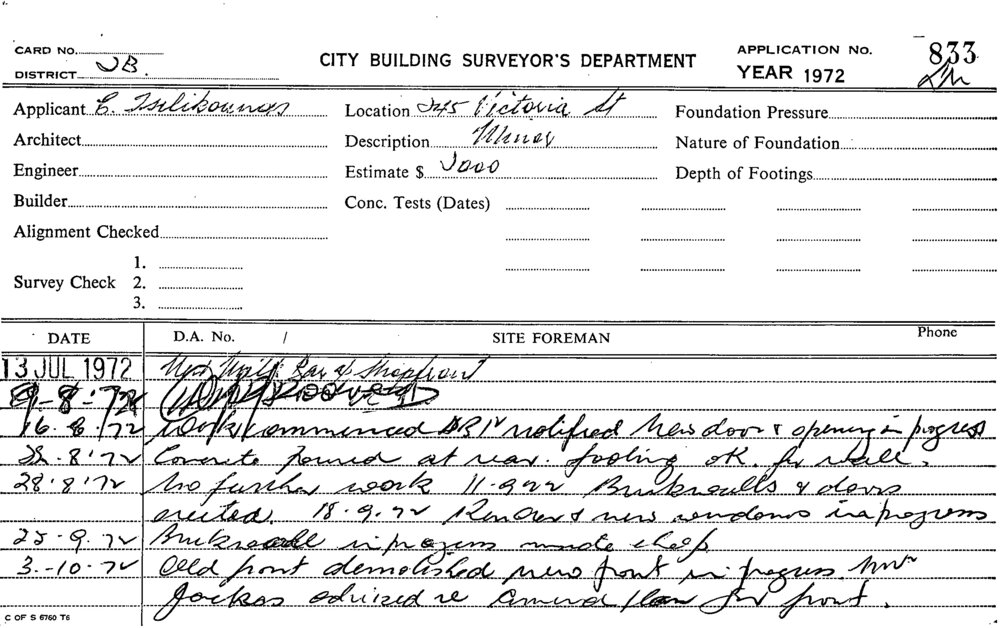 CARD No.
DISTRICT JB.
CITY BUILDING SURVEYOR'S DEPARTMENT
APPLICATION No. 833
YEAR 1972
Applicant C. Tsilikounas
Location 245 Victoria St
Foundation Pressure
Architect
Description Minor
Nature of Foundation
Engineer
Estimate $ 2000
Depth of Footings
Builder
Conc. Tests (Dates)
Alignment Checked
Survey Check
1.
2.
3.
DATE D.A. No. / SITE FOREMAN Phone
13 JUL 1972 Milk Bar & Shopfront
16.8.72 Work commenced notified New door & opening in progress
22.8.72 Concrete poured at rear. footing OK. for wall.
28.8.72 No further work 11.9.72 Brickwalls & doors
erected. 18.9.72 Render & new windows in progress
25.9.72 Brickwall in progress inside shop
3.-10.72 Old front demolished new front in progress.
advised re Amend plan for front.
C OF S 6760 T6